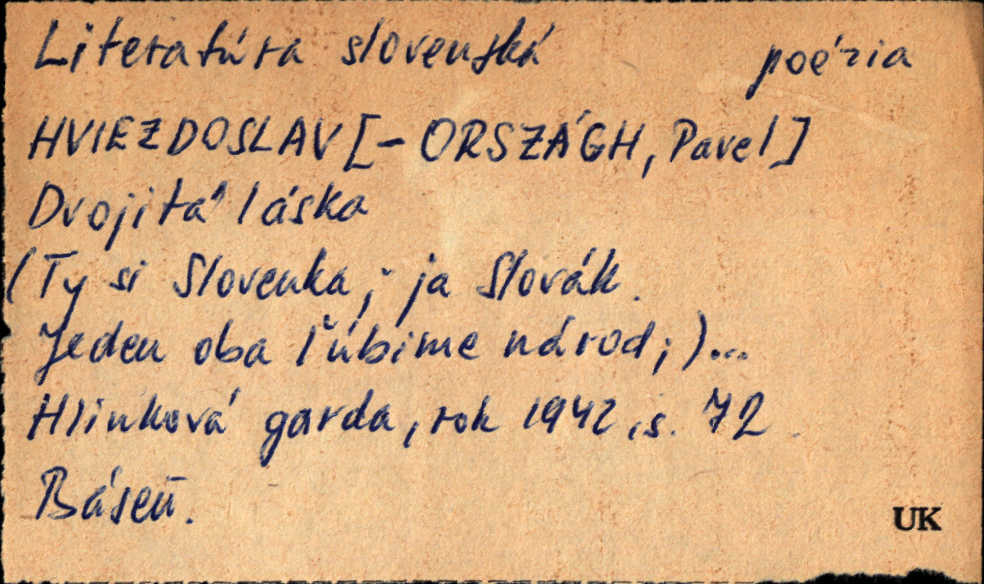 Literatúra slovenská poézia
HVIEZDOSLAV [- ORSZÁGH, Pavel]
Dvojitá láska
(Ty si Slovenka, ja Slovák.
Jeden oba ľúbime národ;)...
Hlinková garda, rok 1942, s. 72.
Báseň.
UK